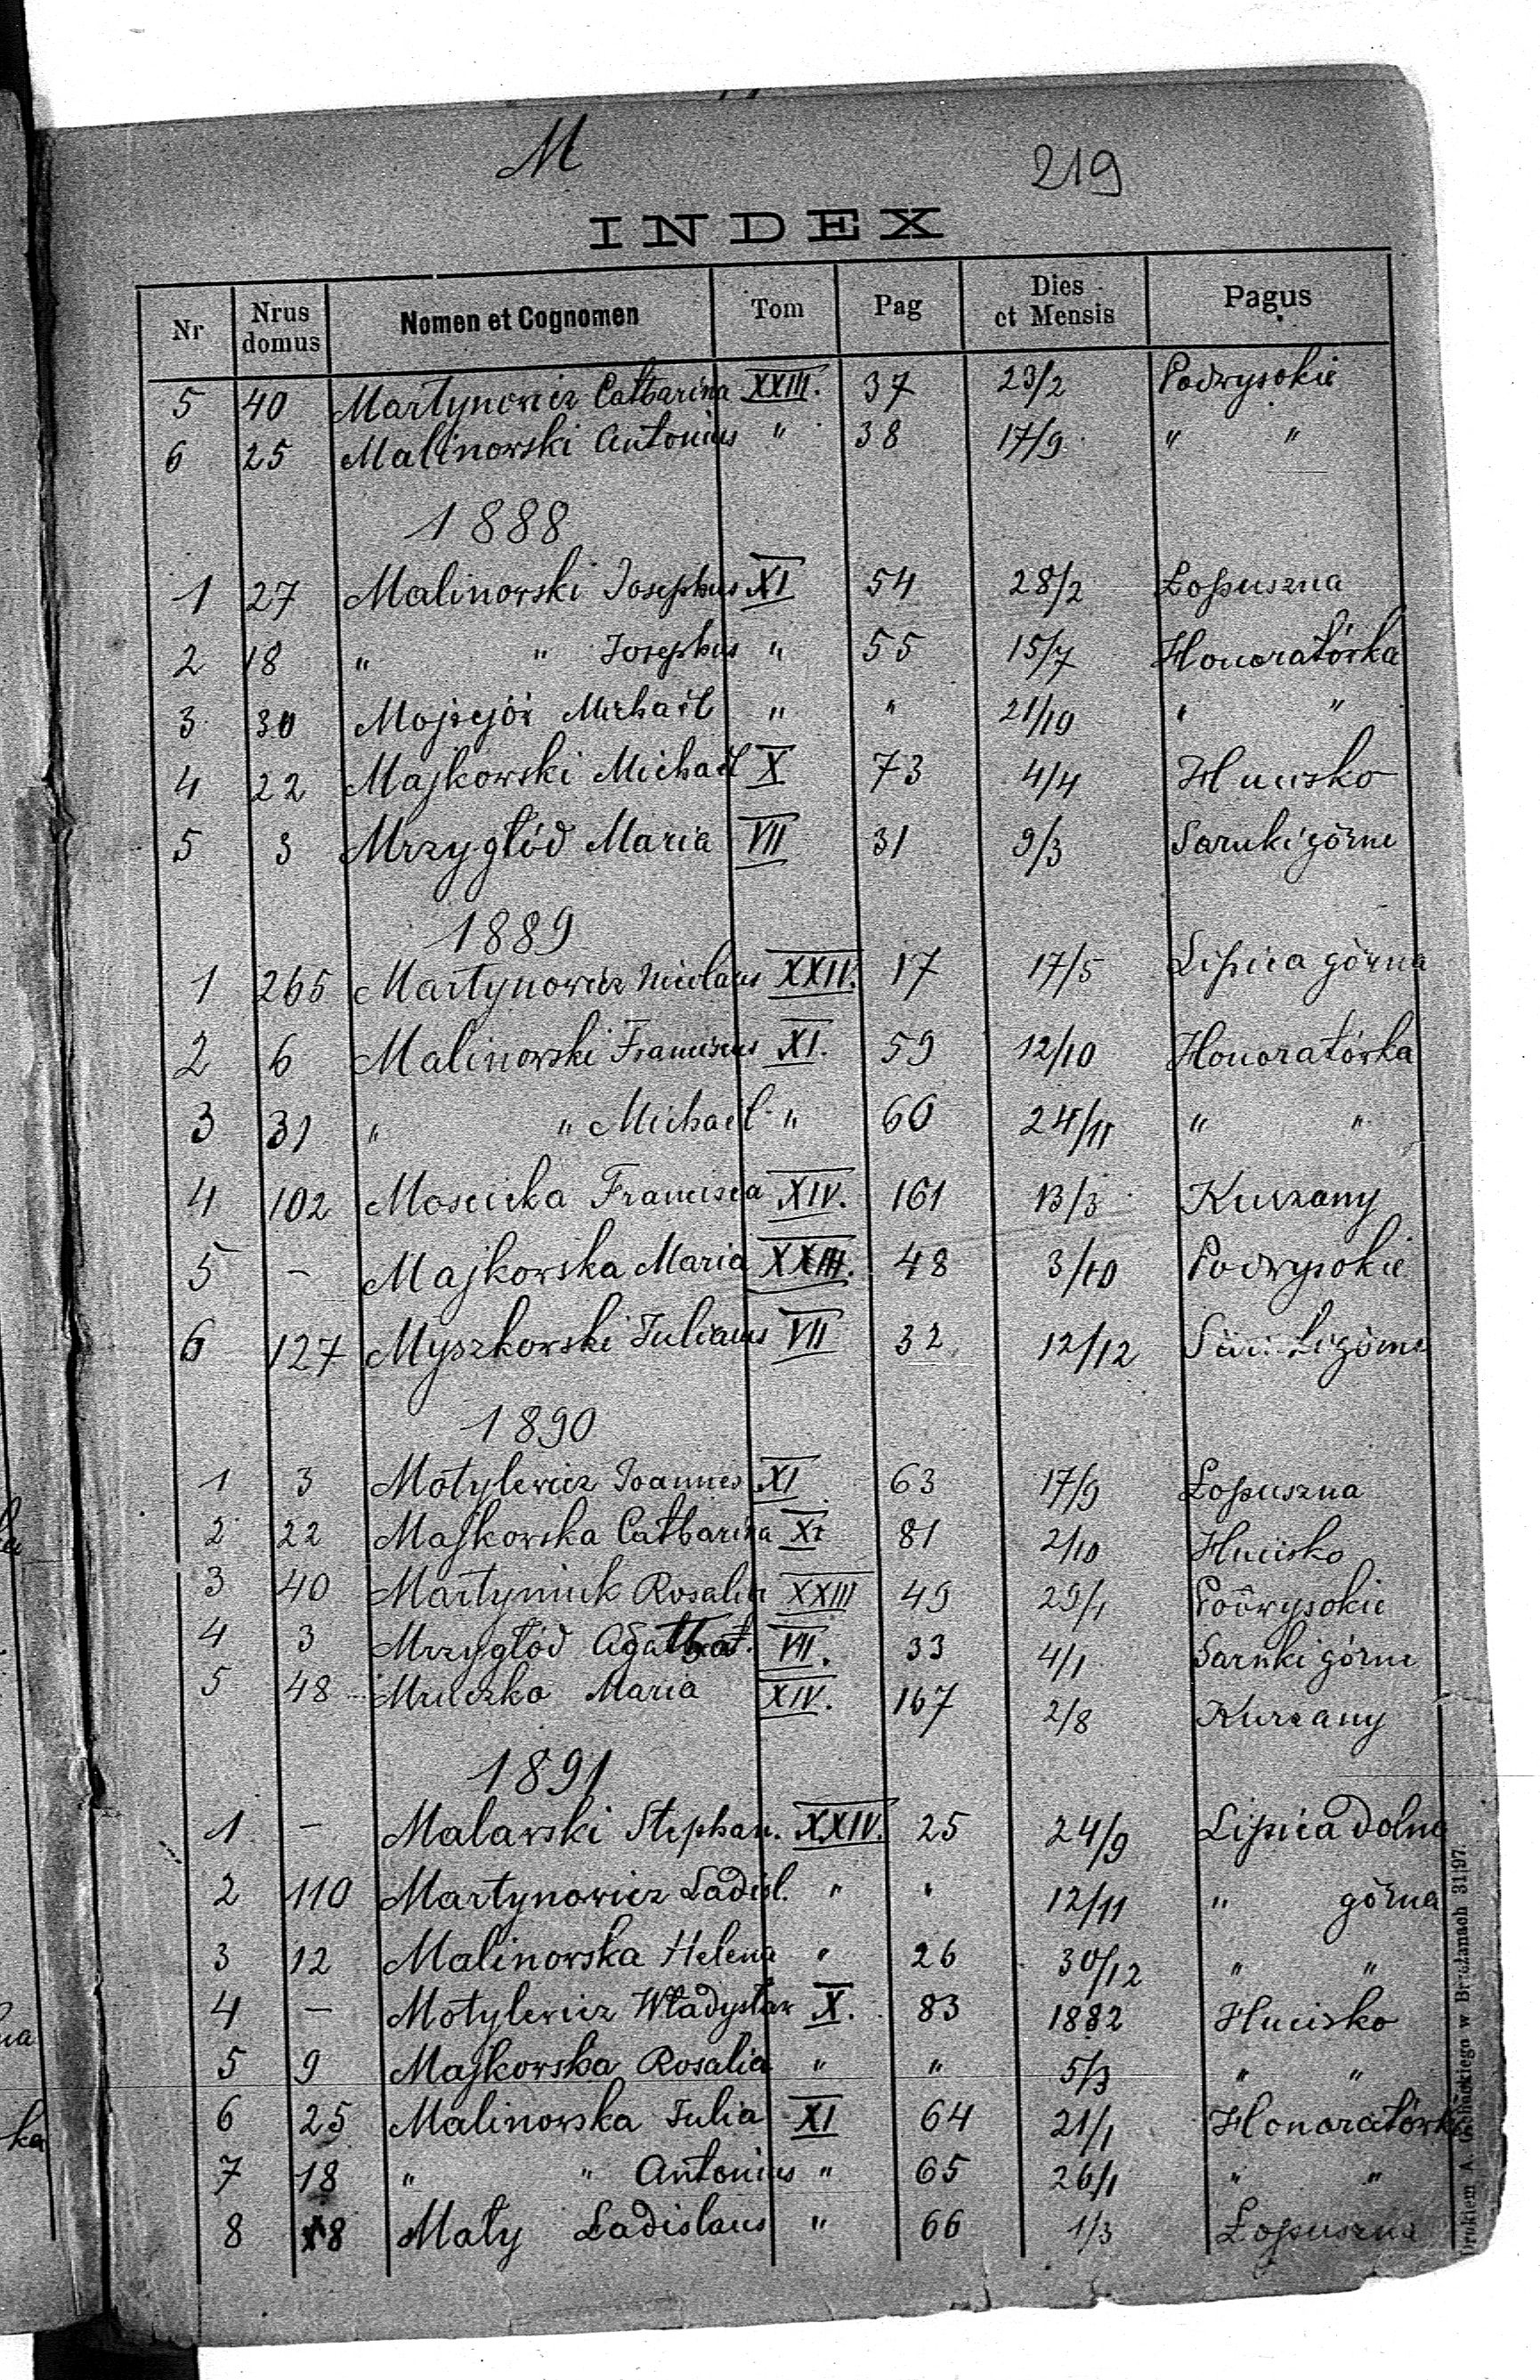 M
219
INDEX
Nr Nrus domus Nomen et Cognomen Tom Pag Dies et Mensis Pagus
5 40 Martynowicz Catharina XXIII. 37 23/2 Podwysokie
6 25 Malinowski Antonius " 38 17/9 " "
1888
1 27 Malinowski Josephus XI 54 28/2 Łopuszna
2 18 " " Josephus " 55 15/7 Honoratówka
3 30 Michaël " " 21/10 " "
4 22 Majkowski Michaël X 73 4/4 Hucisko
5 3 Mrzygłód Maria VII 31 9/3 Sarnki górne
1889
1 265 Martynowicz Nicolaus XXIV. 17 17/5 Lipica górna
2 6 Malinowski Franciscus XI. 59 12/10 Honoratówka
3 31 " " Michaël " 60 24/11 " "
4 102 Moscicka Francisca XIV. 161 13/3 Kurzany
5 - Majkowska Maria XXIII. 48 3/10 Podwysokie
6 127 Myszkowski Julianus VII 32 12/12 górne
1890
1 3 Motylewicz Joannes XI 63 17/9 Łopuszna
2 22 Majkowska Catharina XI 81 2/10 Hucisko
3 40 Martyniuk Rosalia XXIII 49 29/1 Podwysokie
4 3 Mrzygłód Agatha VII. 33 4/1 Sarnki górne
5 48 Mruczko Maria XIV. 167 2/8 Kurzany
1891
1 - Malawski Stephan. XXIV. 25 24/9 Lipica dolna
2 110 Martynowicz Ladisl. " " 12/11 " górna
3 12 Malinowska Helena " 26 30/12 " "
4 - Motylewicz Władysław X. 83 1882 Hucisko
5 9 Majkowska Rosalia " " 5/3 " "
6 25 Malinowska Julia XI 64 21/1 Honoratówka
7 18 " " Antonius " 65 26/1 " "
8 18 Mały Ladislaus " 66 1/3 Łopuszna
Drukiem A. w Brzeżanach 31|97.